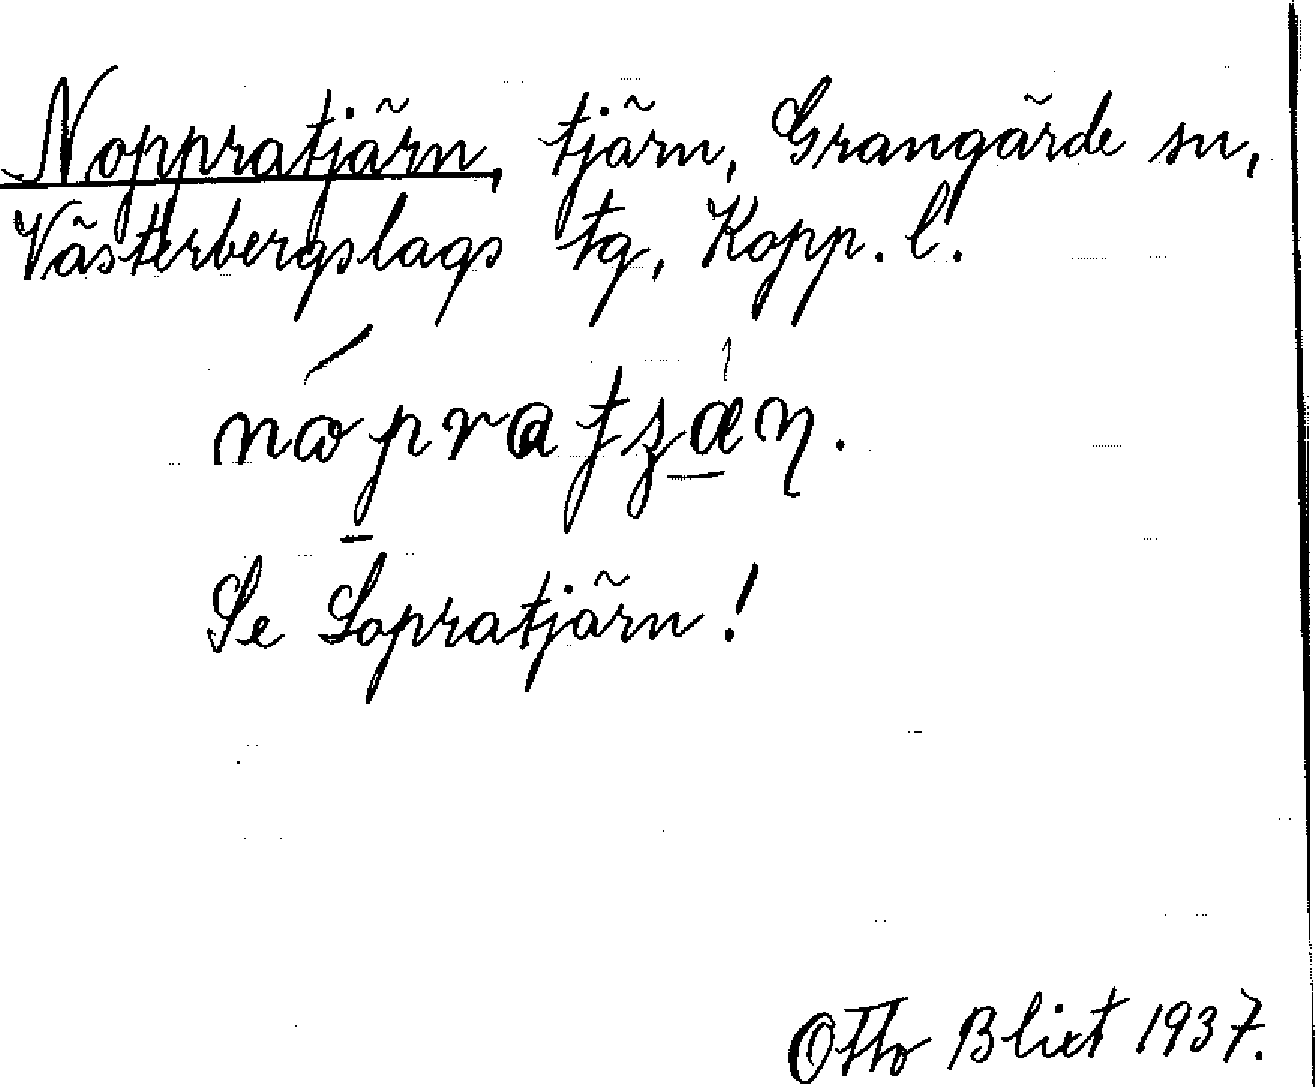 Noppratjärn, tjärn, Grangärde sn,
Västerbergslags tg, Kopp. l.
Se Sopratjärn!
Otto Blixt 1937.